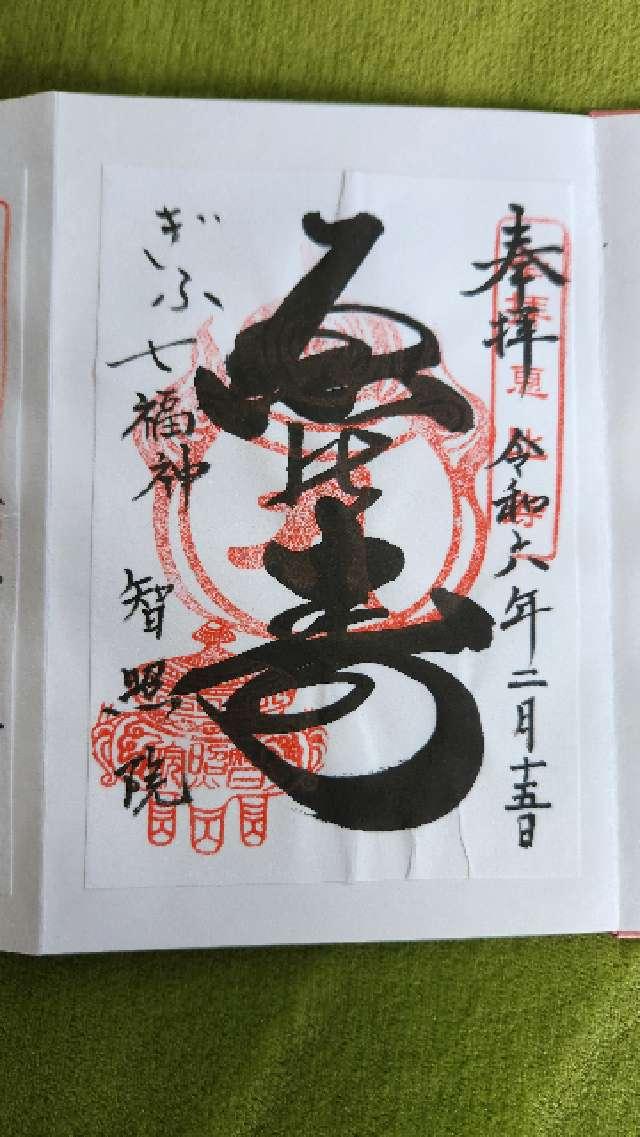 奉拝 令和六年二月十五日
恵比寿
ぎふ七福神 智照院